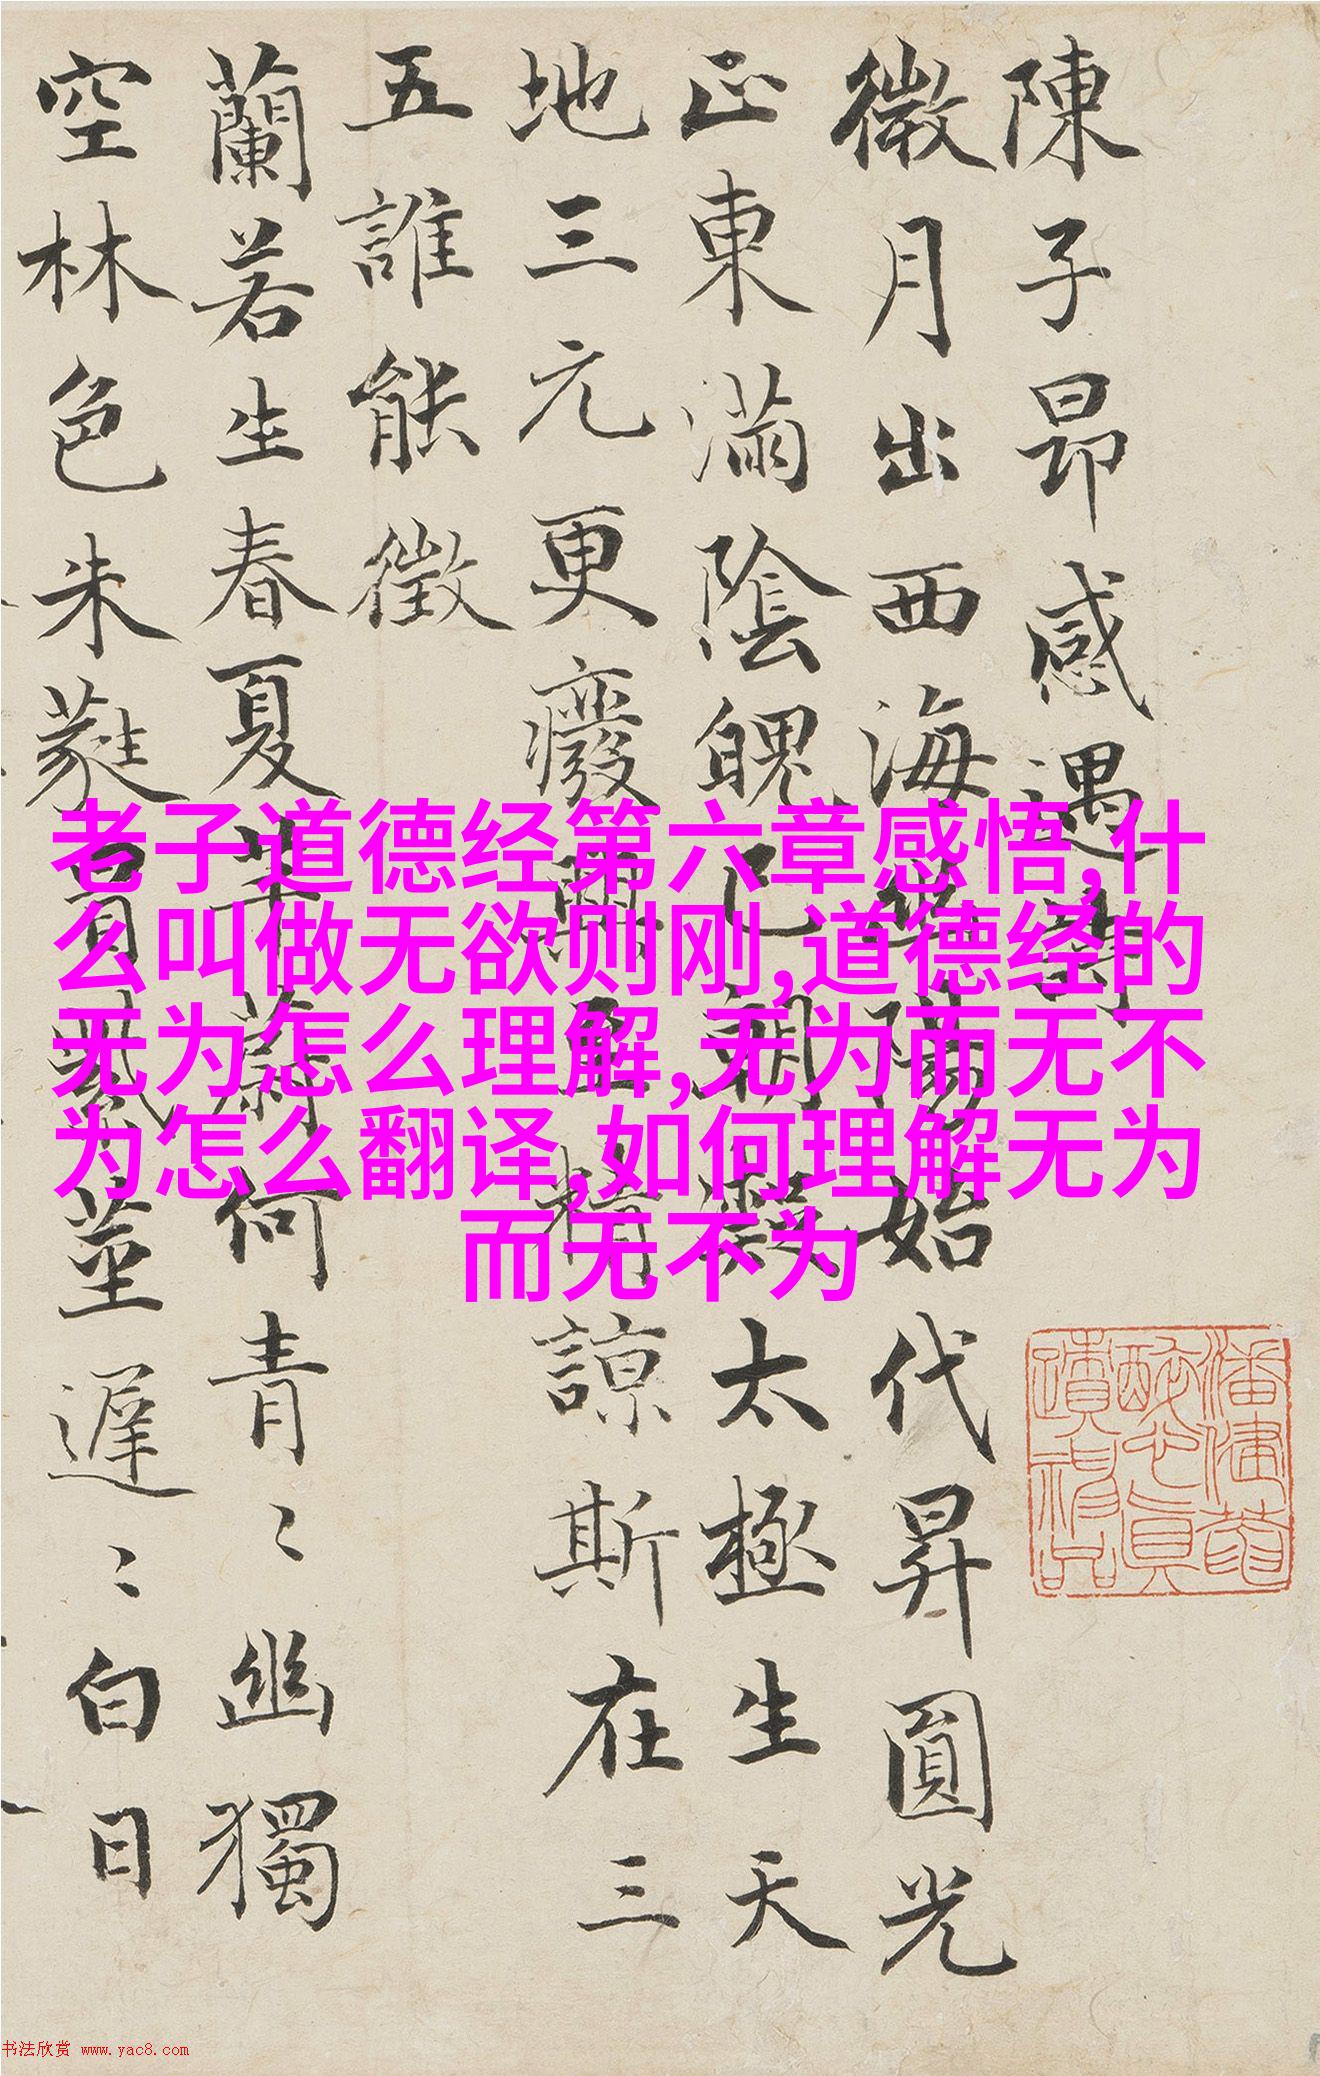 陳子昂感遇詩
微月出西海幽陽始代昇圓光
正東滿陰魄已朝凝太極生天
地三元更癈興至精諒斯在三
五誰能徵
蘭若生春夏芊蔚何青〻幽獨
空林色朱蕤冒紫莖遲〻白日
老子道德经第六章感悟,什
么叫做无欲则刚,道德经的
无为怎么理解,无为而无不
为怎么翻译,如何理解无为
而无不为
书法欣赏 www.yac8.com